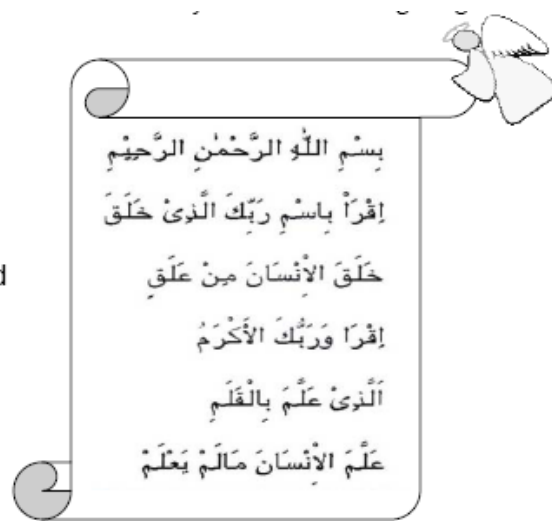 بِسْمِ اللّٰهِ الرَّحْمٰنِ الرَّحِيْمِ
اِقْرَاْ بِاسْمِ رَبِّكَ الَّذِىْ خَلَقَ
خَلَقَ الْاِنْسَانَ مِنْ عَلَقٍ
اِقْرَا وَرَبُّكَ الأَكْرَمُ
اَلَّذِىْ عَلَّمَ بِالْقَلَمِ
عَلَّمَ الْاِنْسَانَ مَالَمْ يَعْلَمْ